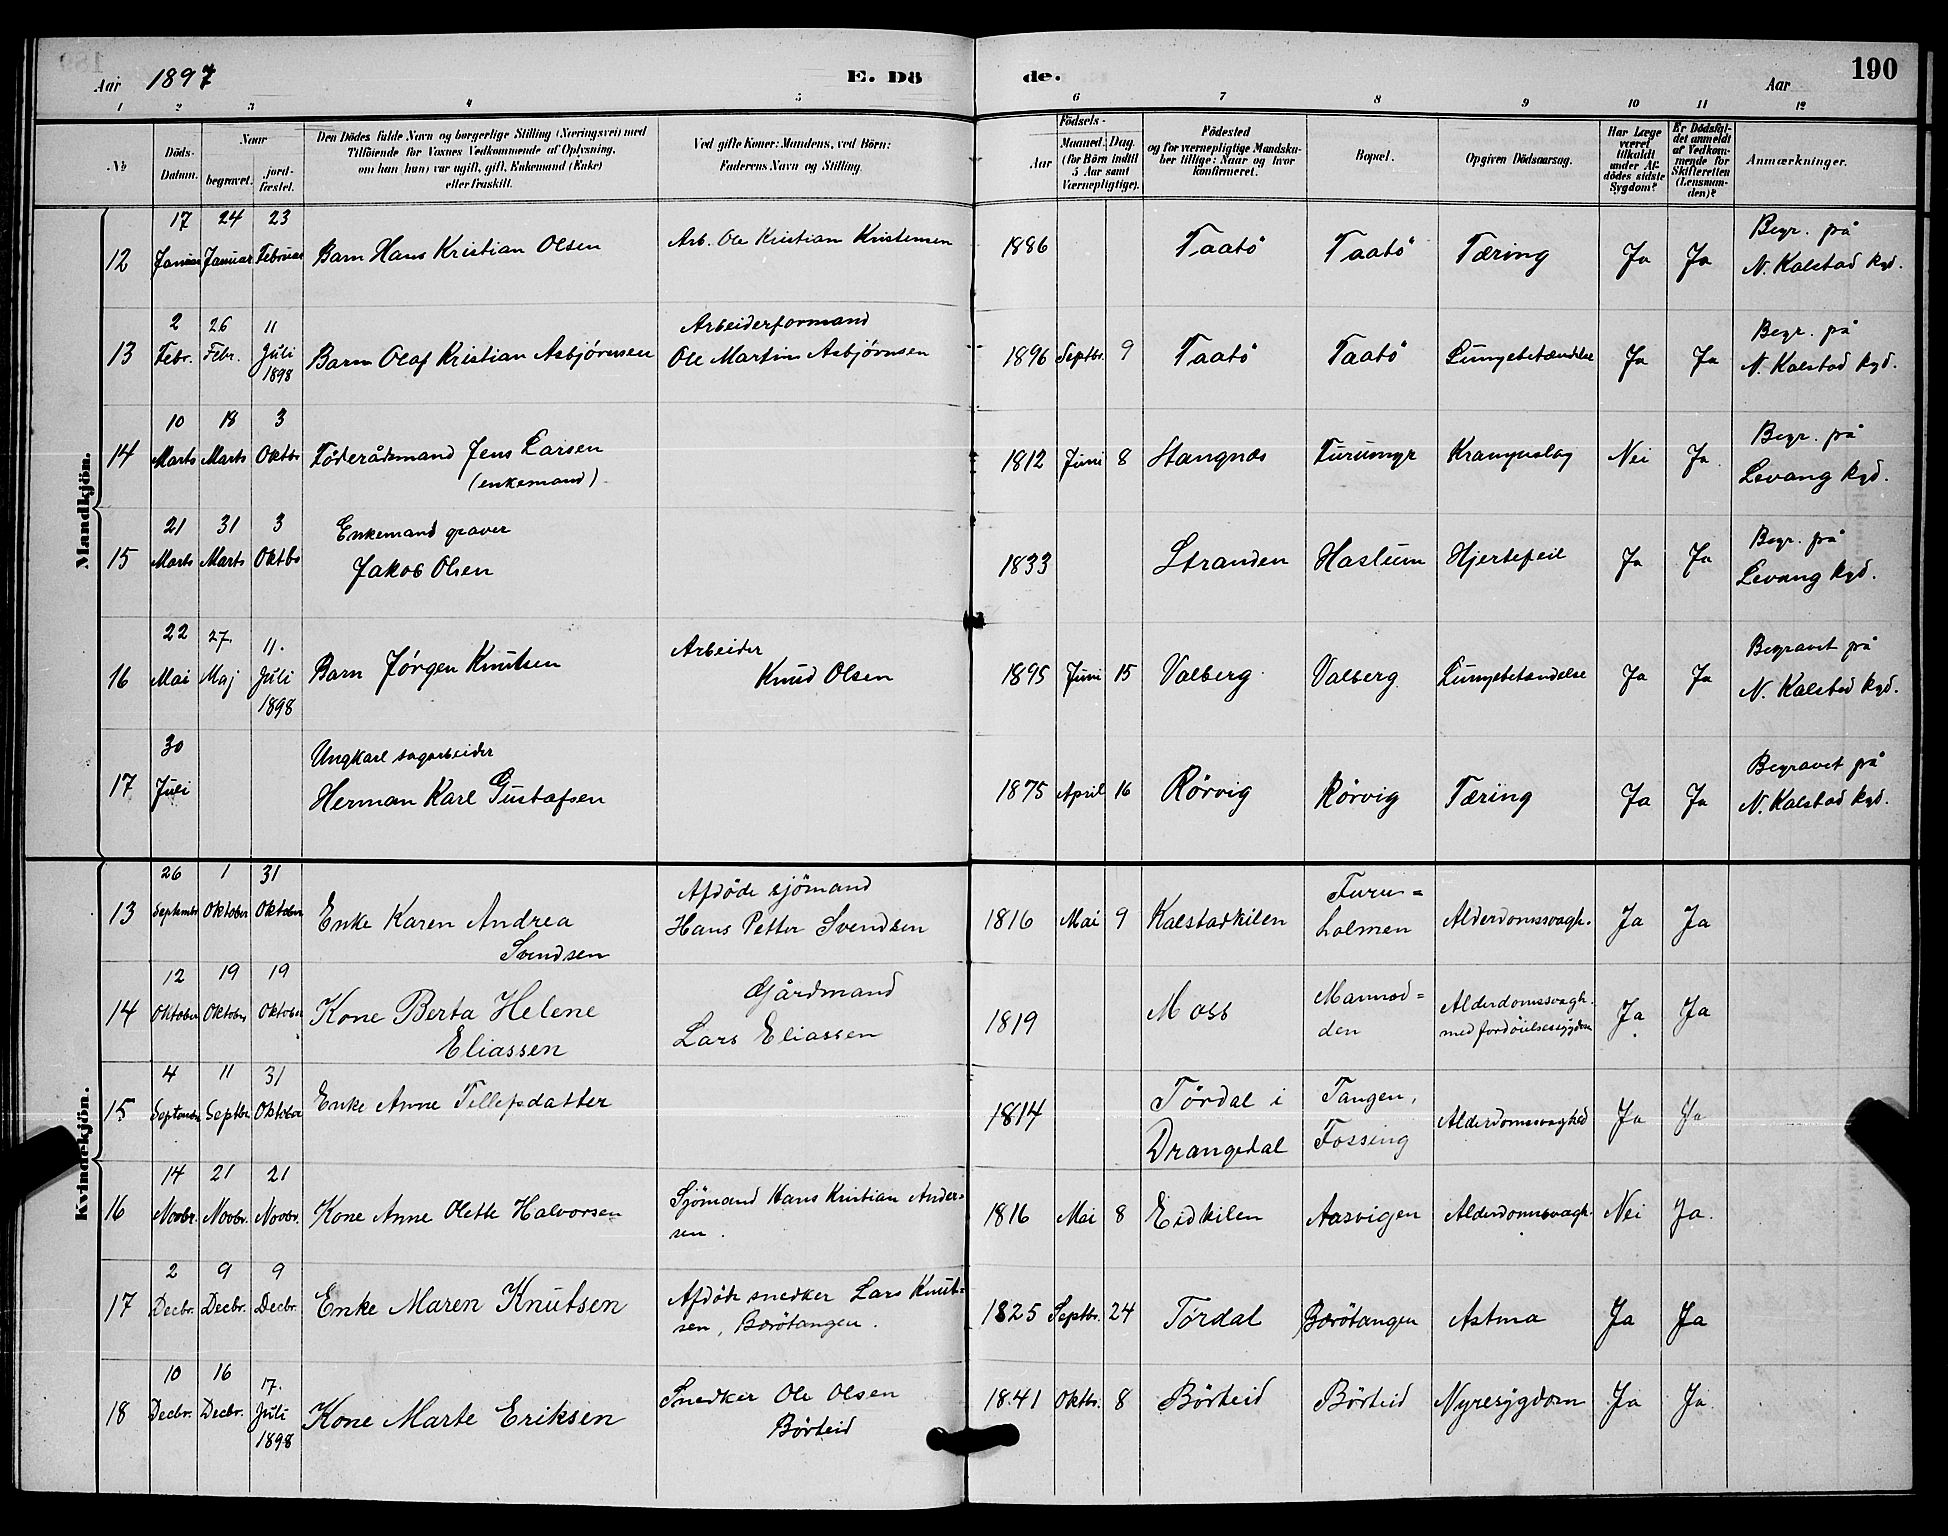 Aar 1897 E. Dö de. Aar 190
1 2 3 4 5 6 7 8 9 10 11 12
No
Döds-Datum.
Naar
begravet.
jordfæstet.
Den Dödes fulde Navn og borgerlige Stilling (Næringsvei) med
Tilföiende for Voxnes Vedkommende af Oplysning,
om han (hun) var ugift, gift, Enkemand (Enke)
eller fraskilt.
Ved gifte Koner: Mandens, ved Börn:
Faderens Navn og Stilling.
Födsels-
Aar
Maaned. Dag.
(for Börn indtil
5 Aar samt
Værnepligtige).
Födested
og for værnepligtige Mandskaber tillige: Naar og hvor
konfirmeret.
Bopæl.
Opgiven Dödsaarsag.
Har Læge
været
tilkaldt
under Afdödes sidste
Sygdom?
Er Dödsfaldet anmeldt
af Vedkommende for
Skifteretten
(Lensmanden)?
Anmærkninger.
Mandkjön.
12 17 Januar 24 Januar 23 Februar Barn Hans Kristian Olsen Arb. Ole Kristian Kristensen 1886 Taatö Taatö Tæring Ja Ja Begr. på
N. Kalstad kgd.
13 2 Febr. 26 Febr. 11 Juli 1898 Barn Olaf Kristian Asbjörnsen Arbeiderformand
Ole Martin Asbjörnsen 1896 Septbr. 9 Taatö Taatö Lungebetændelse Ja Ja Begr. på
N. Kalstad kgd.
14 10 Marts 18 Marts 3 Oktbr Föderådsmand Jens Larsen
(enkemand) 1812 Juni 8 Stangnæs Furumyr Krampeslag Nei Ja Begr. på
Levang kgd.
15 21 Marts 31 Marts 3 Oktbr Enkemand graver
Jakob Olsen 1833 Stranden Haslum Hjertefeil Ja Ja Begr. på
Levang kgd.
16 22 Mai 27. Maj 11. Juli 1898 Barn Jörgen Knutsen Arbeider
Knud Olsen 1895 Juni 15 Valberg Valberg Lungebetændelse Ja Ja Begravet på
N. Kalstad kgd.
17 30 Juli Ungkarl sagarbeider
Herman Karl Gustafsen 1875 April 16 Rörvig Rörvig Tæring Ja Ja Begravet på
N. Kalstad kgd.
Kvindekjön.
13 26 September 1 Oktober 31 Oktober Enke Karen Andrea
Svendsen Afdöde sjömand
Hans Petter Svendsen 1816 Mai 9 Kalstadkilen Furu=
holmen Alderdomssvagh. Ja Ja
14 12 Oktober 19 Oktober 19 Oktober Kone Berta Helene
Eliassen Gårdmand
Lars Eliassen 1819 Moss
den Alderdomssvagh.
med fordöielsessygdom Ja Ja
15 4 September 11 Septbr 31 Oktober Enke Anne Tellefsdatter 1814 Tördal i
Drangedal Tangen,
Fossing Alderdomssvaghed Ja Ja
16 14 Novbr. 21 Novbr. 21 Novbr. Kone Anne Olette Halvorsen Sjömand Hans Kristian Ander=
sen. 1816 Mai 8 Eidkilen Aasvigen Alderdomssvagh. Nei Ja.
17 2 Decbr. 9 Decbr. 9 Decbr. Enke Maren Knutsen Afdöde snedker Lars Knut=
sen, Barötangen. 1825 Septbr. 24 Tördal Barötangen Astma Ja Ja
18 10 Decbr. 16 Decbr. 17. Juli 1898 Kone Marte Eriksen Snedker Ole Olsen
Börteid 1841 Oktbr. 8 Börteid Börteid Nyresygdom Ja Ja